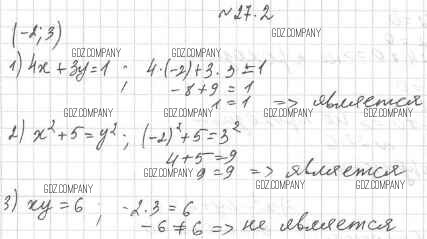 ~ 27.2
(-2; 3)
GDZ.COMPANY
GDZ.COMPANY GDZ.COMPANY
1) 4x + 3y = 1 ; 4·(-2) + 3·3 = 1
-8 + 9 = 1
1 = 1 => является
GDZ.COMPANY GDZ.COMPANY GDZ.COMPANY
2) x² + 5 = y² ; (-2)² + 5 = 3²
4 + 5 = 9
GDZ.COMPANY 9 = 9 => является
GDZ.COMPANY GDZ.COMPANY GDZ.COMPANY
3) xy = 6 ; -2·3 = 6
-6 ≠ 6 => не является